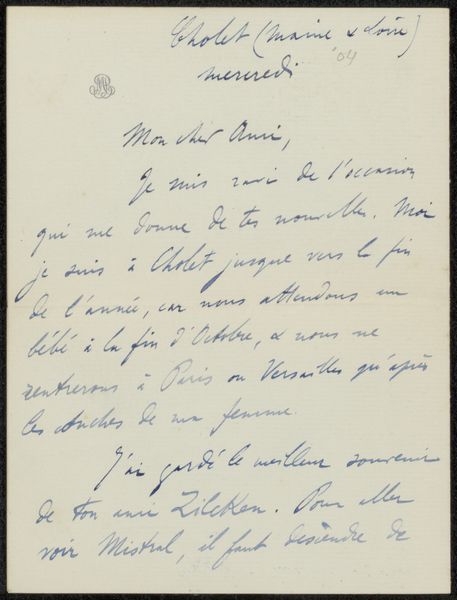 Cholet (Maine & Loire)
'04
mercredi
Mon cher Ami,
Je suis ravi de l'occasion
qui me donne de tes nouvelles. Moi
je suis à Cholet jusque vers la fin
de l'année, car nous attendons un
bébé à la fin d'Octobre, & nous ne
rentrerons à Paris ou Versailles qu'après
les couches de ma femme.
J'ai gardé le meilleur souvenir
de ton ami Zilcken. Pour aller
voir Mistral, il faut descendre de